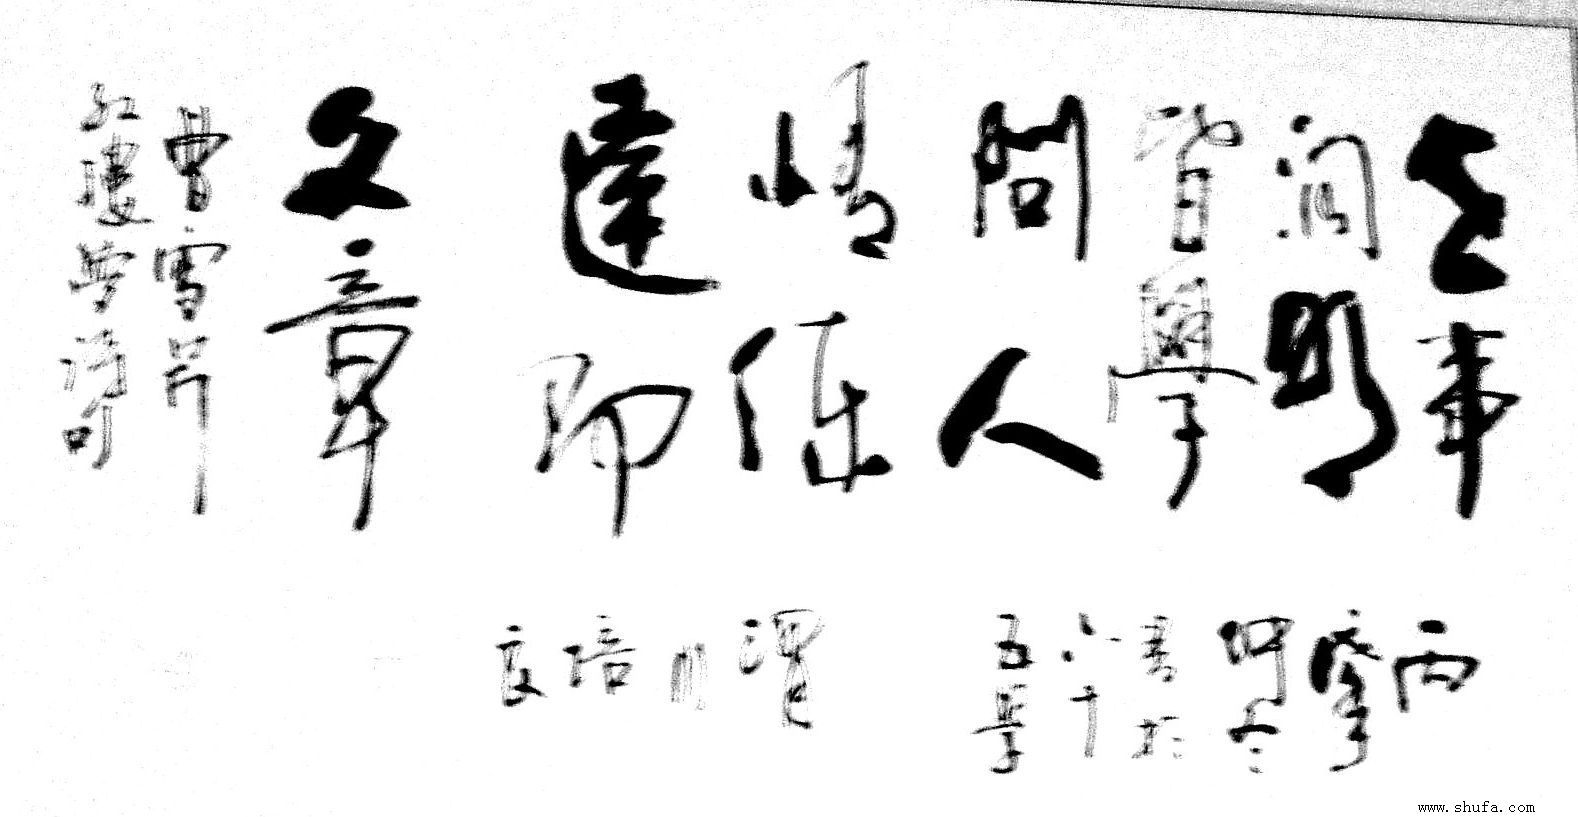 世事
洞明
皆學
問人
情练
達即
文章
曹雪芹
紅樓夢詩句
丙
書於
六十
五
渭
川
培
www.shufa.com